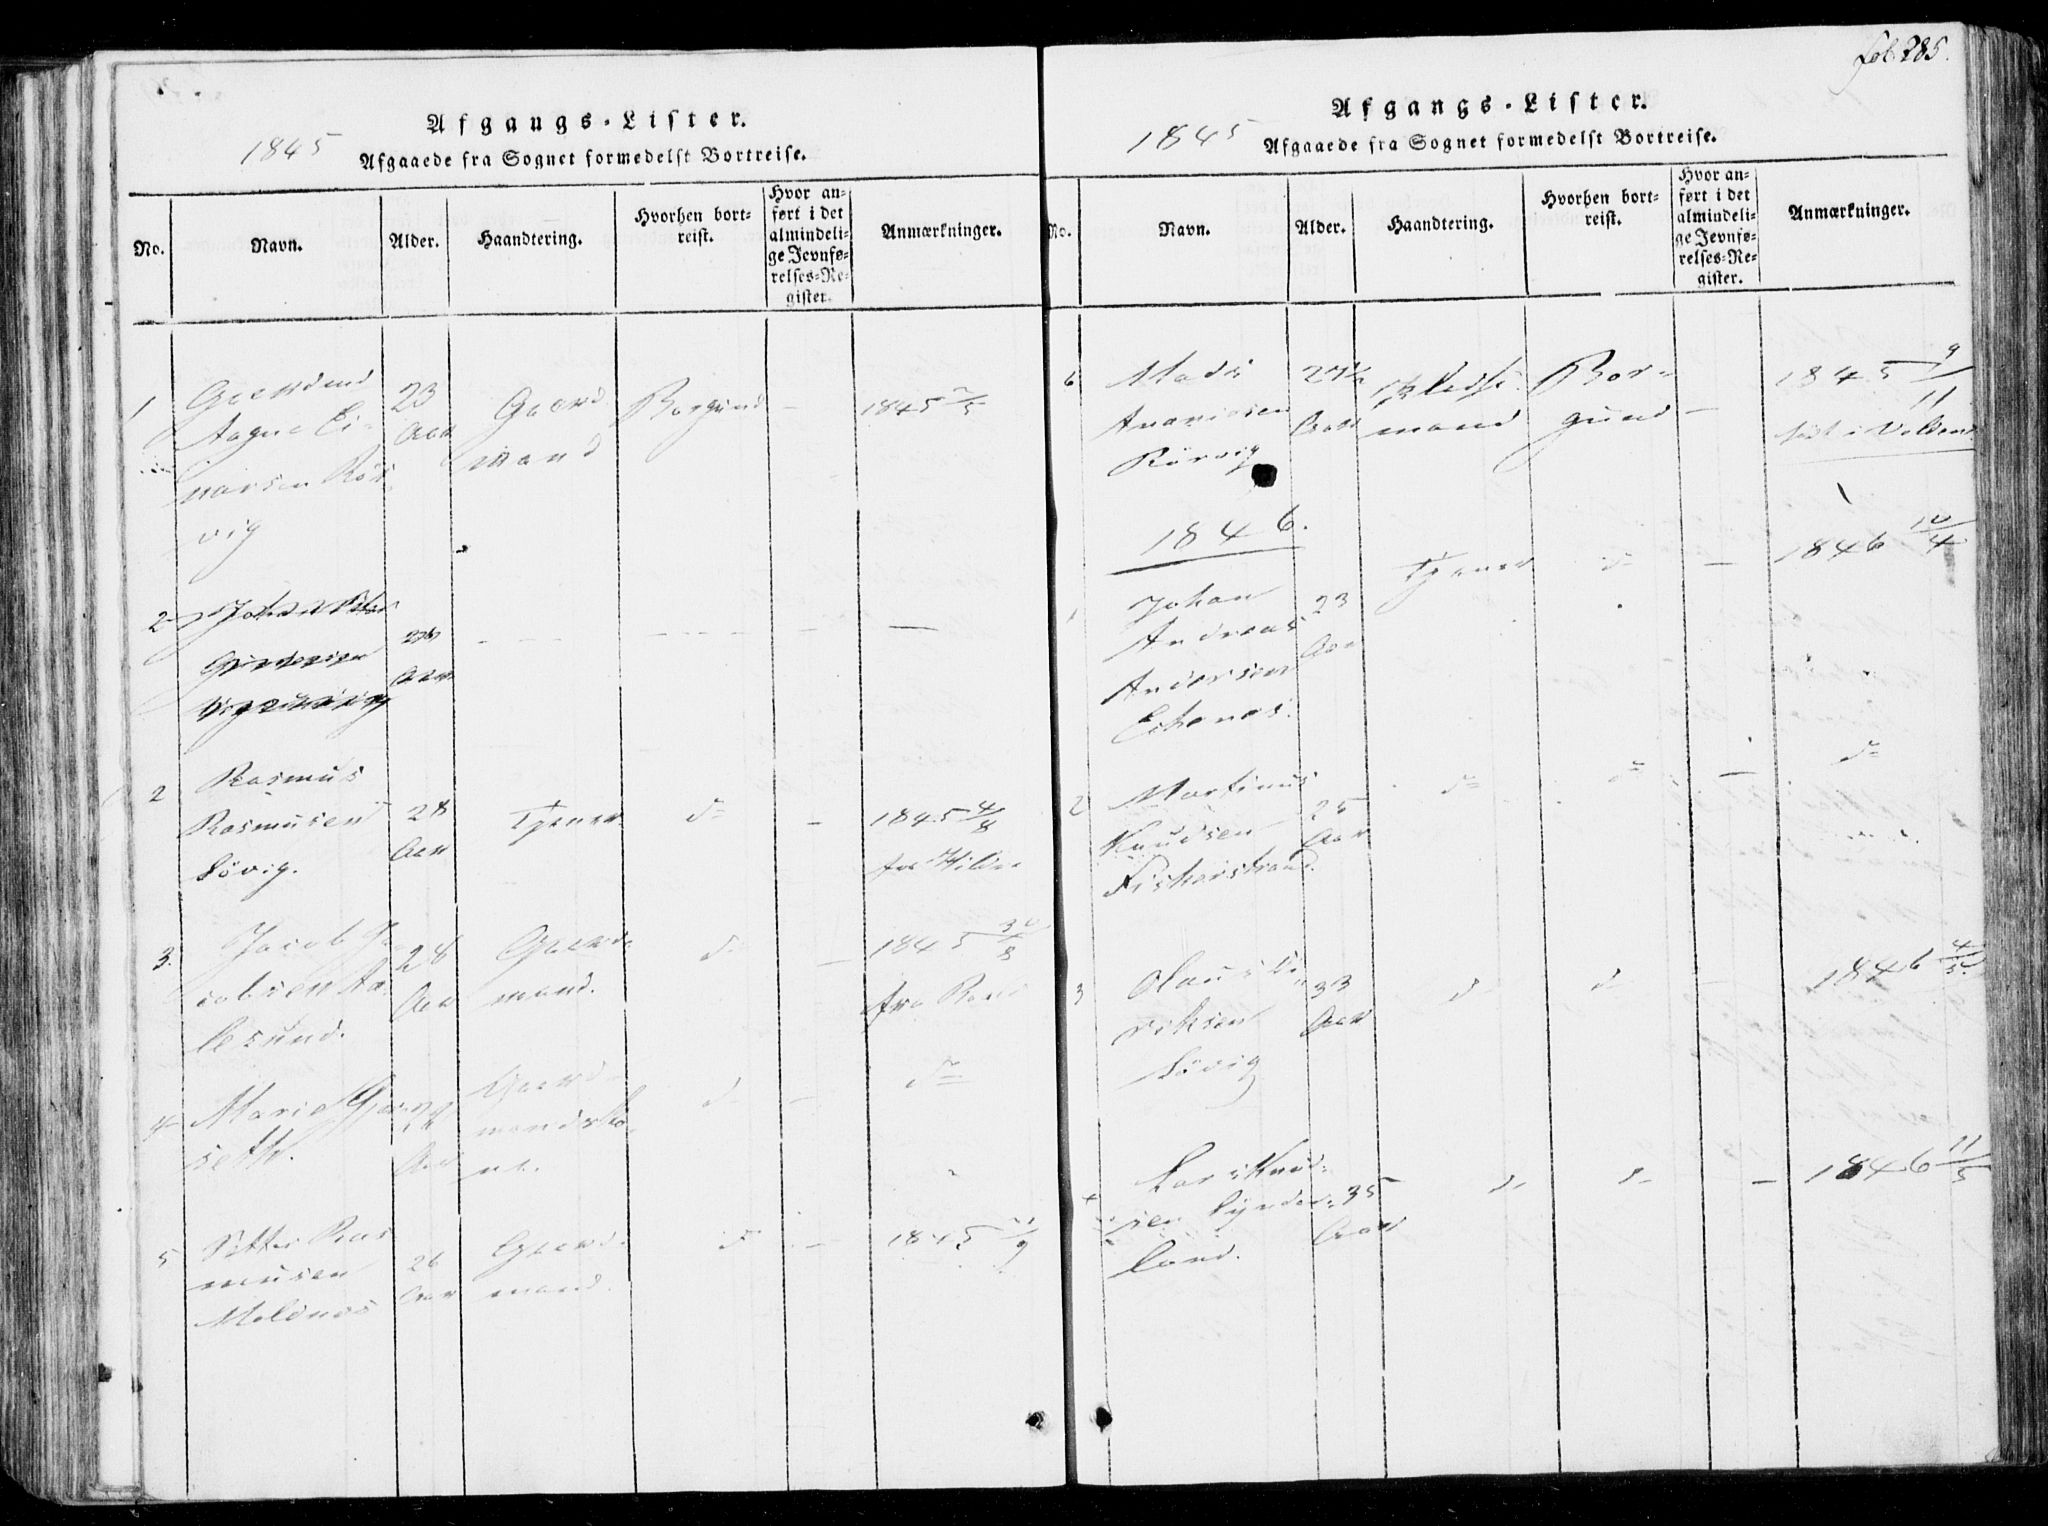 fol. 285.
Afgangs-Lister.
1845
Afgaaede fra Sognet formedelst Bortreise.
No.
Navn.
Alder.
Haandtering.
Hvorhen bort=
reist.
Hvor an=
ført i det
almindeli=
ge Jevnfø=
relses=Re=
gister.
Anmærkninger.
1
Gaardmd
Aagne Ei=
narsen Rör
vig
23
Aar
Gaard
mand
Borgund
–
1845 2/5
2
Aar
2
Rasmus
Rasmusen
Lövig.
28
Aar
Tjener
d=
–
1845 4/8
3.
Jacob Ja=
cobsen Aa=
lesund.
28
Aar
Gaard=
mand.
d=
–
1845 30/8
fra
4
Marie
sæth.
Aar
Gaard=
mandsko=
ne.
d=
–
d=
5
Petter Ras
musen
Molvær
26
Aar
Gaard=
mand.
d=
–
1845
Afgangs-Lister.
1845
Afgaaede fra Sognet formedelst Bortreise.
No.
Navn.
Alder.
Haandtering.
Hvorhen bort=
reist.
Hvor an=
ført i det
almindeli=
ge Jevnfø=
relses=Re=
gister.
Anmærkninger.
6
Mads
Ananiasen
Rörvig
27½
Aar
mand
Bor=
gund
–
1845 9/11
1846.
1
Johan
Andreas
Andersen
Eidsnæs.
23
Aar
Tjener
d=
–
1846 10/4
2
Martinus
Knudsen
Fiskerstrand.
25
Aar
d=
d=
–
d=
3
Olaus
riksen
Lövig
33
Aar
d=
d=
–
1846 4/5
4
Lars Knud=
sen Synder=
land.
35
Aar
d=
d=
–
1846 11/5